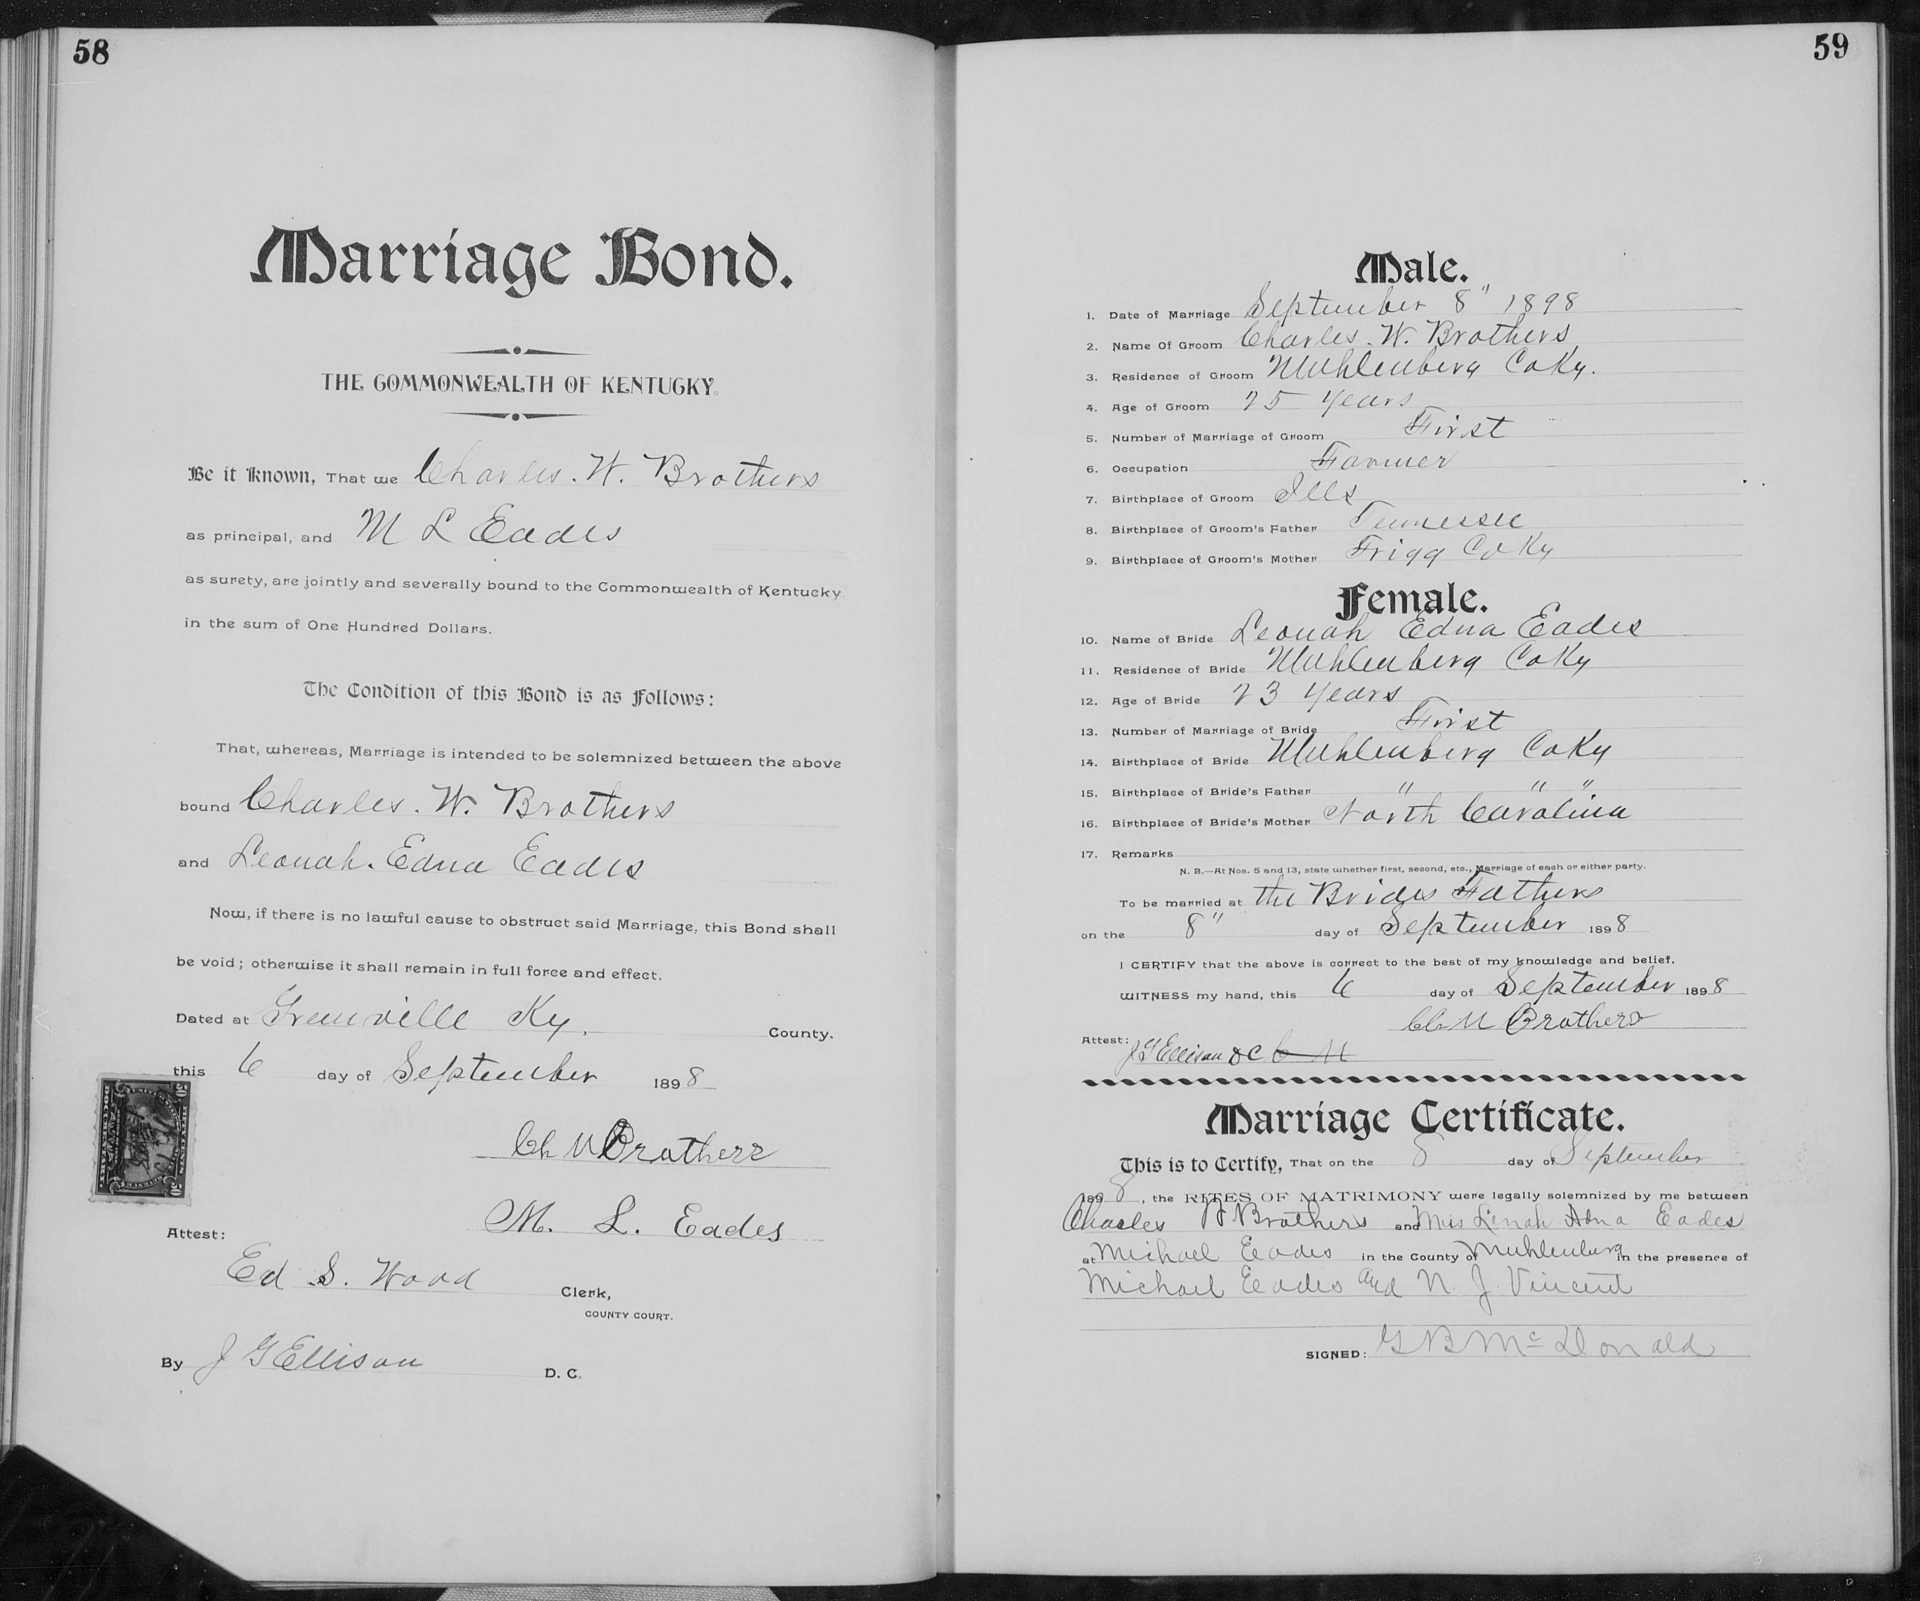 58
Marriage Bond.
THE COMMONWEALTH OF KENTUCKY.
Be it Known, That we Charles. W. Brothers
as principal, and M L Eades
as surety, are jointly and severally bound to the Commonwealth of Kentucky
in the sum of One Hundred Dollars.
The Condition of this Bond is as Follows:
That, whereas, Marriage is intended to be solemnized between the above
bound Charles. W. Brothers
and Leonah. Edna Eades
Now, if there is no lawful cause to obstruct said Marriage, this Bond shall
be void; otherwise it shall remain in full force and effect.
Dated at Greenville Ky. County.
this 6 day of September 1898
Ch W Brothers
M. L. Eades
Attest:
Ed S. Wood Clerk,
COUNTY COURT.
By J G Ellison D. C.
59
Male.
1. Date of Marriage September 8" 1898
2. Name Of Groom Charles. W. Brothers
3. Residence of Groom Muhlenberg Co Ky.
4. Age of Groom 25 Years
5. Number of Marriage of Groom First
6. Occupation Farmer
7. Birthplace of Groom Ills
8. Birthplace of Groom's Father Tennessee
9. Birthplace of Groom's Mother Trigg Co Ky
Female.
10. Name of Bride Leonah Edna Eades
11. Residence of Bride Muhlenberg Co Ky
12. Age of Bride 23 Years
13. Number of Marriage of Bride First
14. Birthplace of Bride Muhlenberg Co Ky
15. Birthplace of Bride's Father " " "
16. Birthplace of Bride's Mother North Carolina
17. Remarks
N. B.—At Nos. 5 and 13, state whether first, second, etc., Marriage of each or either party.
To be married at the Brides Fathers
on the 8" day of September 1898
I CERTIFY that the above is correct to the best of my knowledge and belief.
WITNESS my hand, this 6 day of September 1898
Ch W Brothers
Attest: J G Ellison DC
Marriage Certificate.
This is to Certify, That on the 8 day of September
1898, the RITES OF MATRIMONY were legally solemnized by me between
Charles W Brothers and Miss Lenah Adna Eades
at Michael Eades in the County of Muhlenburg in the presence of
Michael Eades and N. J. Vincent
SIGNED: G B McDonald